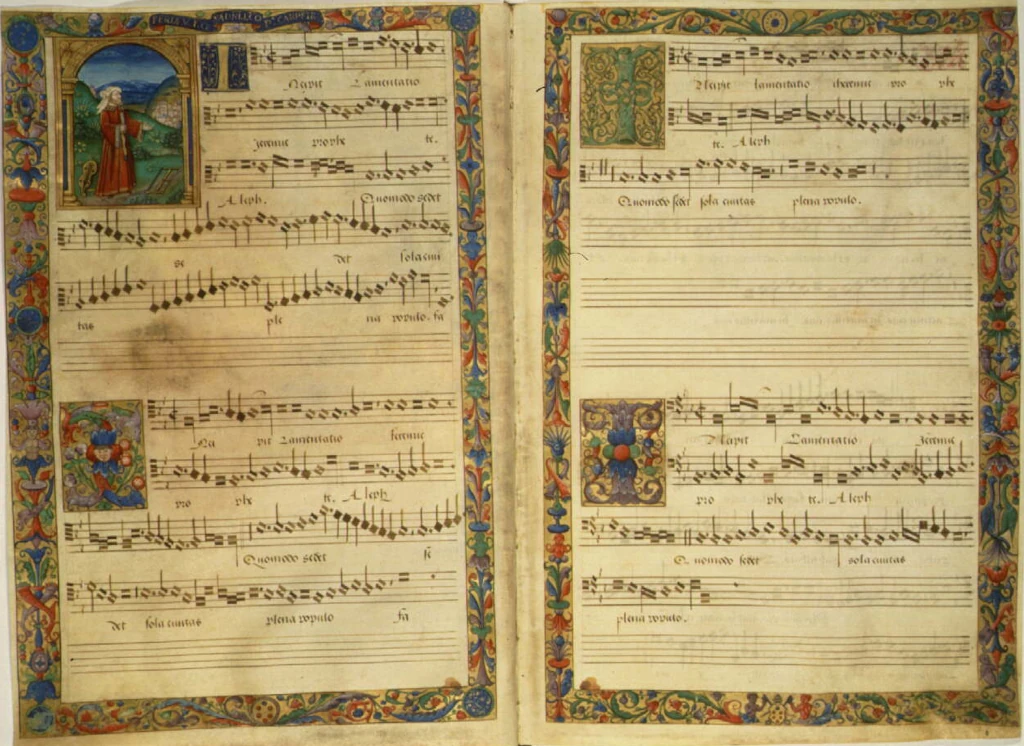 Ncipit Lamentatio
Jeremie prophe te.
Aleph. Quomodo sedet
se det sola ciui
tas ple na populo. fa
Nci pit Lamentatio Jeremie
pro phe te. Aleph
Quomodo sedet se
det sola ciuitas plena populo fa
Ncipit lamentatio iheremie pro phe
te. Aleph
Quomodo sedet sola ciuitas plena populo.
Ncipit Lamentatio Jeremie
pro phe te. Aleph
Quomodo sedet sola ciuitas
plena populo.